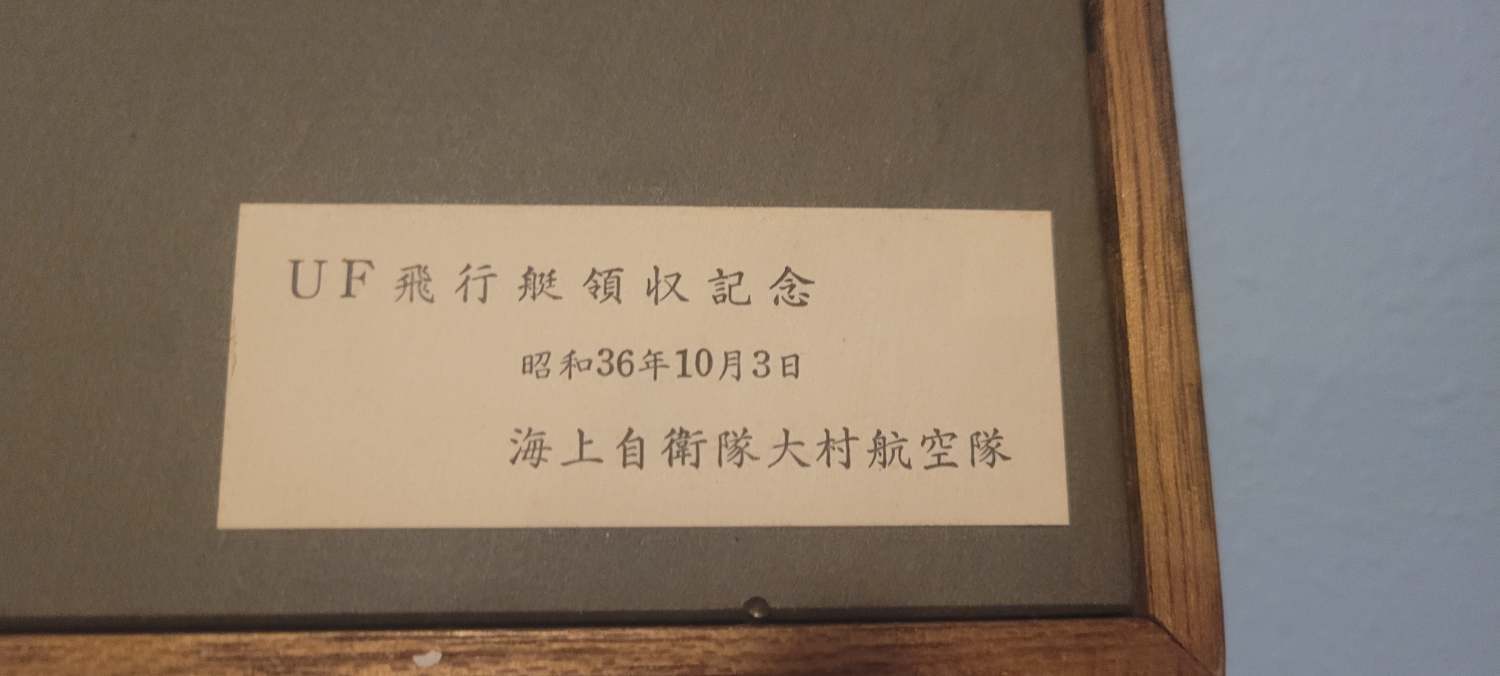 UF飛行艇領収記念
昭和36年10月3日
海上自衛隊大村航空隊